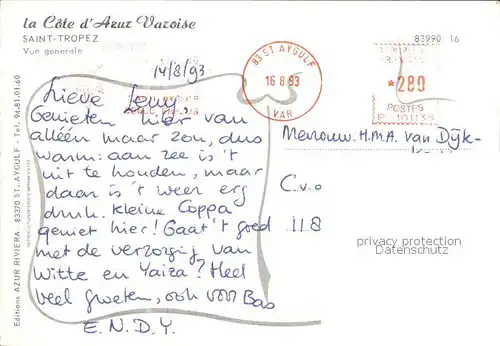 la Côte d'Azur Varoise
SAINT-TROPEZ
Vue generale
83990 16
14/8/93
83 ST AYGULF
16 8 93
VAR
*280
POSTES
P 101135
Lieve Leny,
Genieten hier van
alléén maar zon, dus
warm: aan zee is 't
uit te houden, maar
daar is 't weer erg
druk. Kleine Coppa
geniet hier! Gaat 't goed
met de verzorgij van
Witte en Yaiza? Heel
veel groeten, ook voor Bas
E.N.D.Y.
Mevrouw. H.M.A. van Dijk-
C.v.o
118
privacy protection
Datenschutz
Editions AZUR RIVIERA 83370 ST. AYGULF - Tel. 94.81.01.60